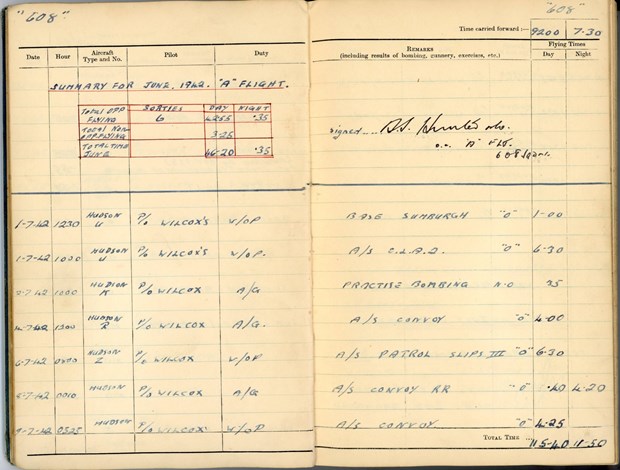 "608"
"608"
Time carried forward :— 9200 7.30
Date Hour Aircraft Type and No. Pilot Duty
REMARKS
(including results of bombing, gunnery, exercises, etc.)
Flying Times
Day Night
SUMMARY FOR JUNE, 1942. "A" FLIGHT.
SORTIES DAY NIGHT
TOTAL OPP FLYING 6 4255 .35
TOTAL NON OPP FLYING 3-25
TOTAL TIME JUNE 46-20 .35
signed....
o.c. "A" FLT.
608 Sqdn.
1-7-42 1230 HUDSON U P/O WILCOX'S W/OP BASE SUMBURGH "O" 1-00
1-7-42 1000 HUDSON U P/O WILCOX'S W/OP. A/S "O" 6-30
1000 HUDSON K P/O WILCOX A/G PRACTISE BOMBING N.O 35
HUDSON R P/O WILCOX A/G. A/S CONVOY "O" 4-00
6-7-42 HUDSON Z P/O WILCOX W/OP A/S PATROL SLIPS III "O" 6-30
0010 HUDSON P/O WILCOX A/G A/S CONVOY RR "O" .40 4-20
0525 HUDSON P/O WILCOX W/OP A/S CONVOY "O" 4-25
TOTAL TIME ... 115-40 11-50